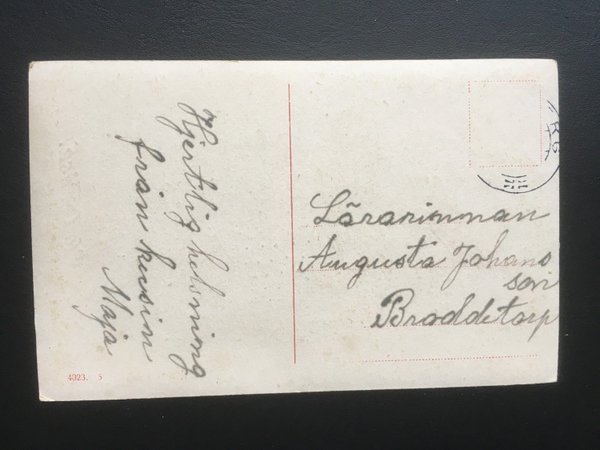 Hjertlig helsning
från kusin
Maja
Lärarinnan
Augusta Johans
son
Broddetorp
4023. 5